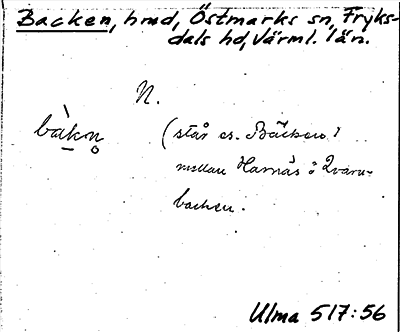 Backen, hmd, Östmarks sn, Fryks-
dals hd, Värml. län.
N.
bàkn̥ (står os. Bäcken!
mellan Harnäs o Qvarn-
backen.
Ulma 517:56